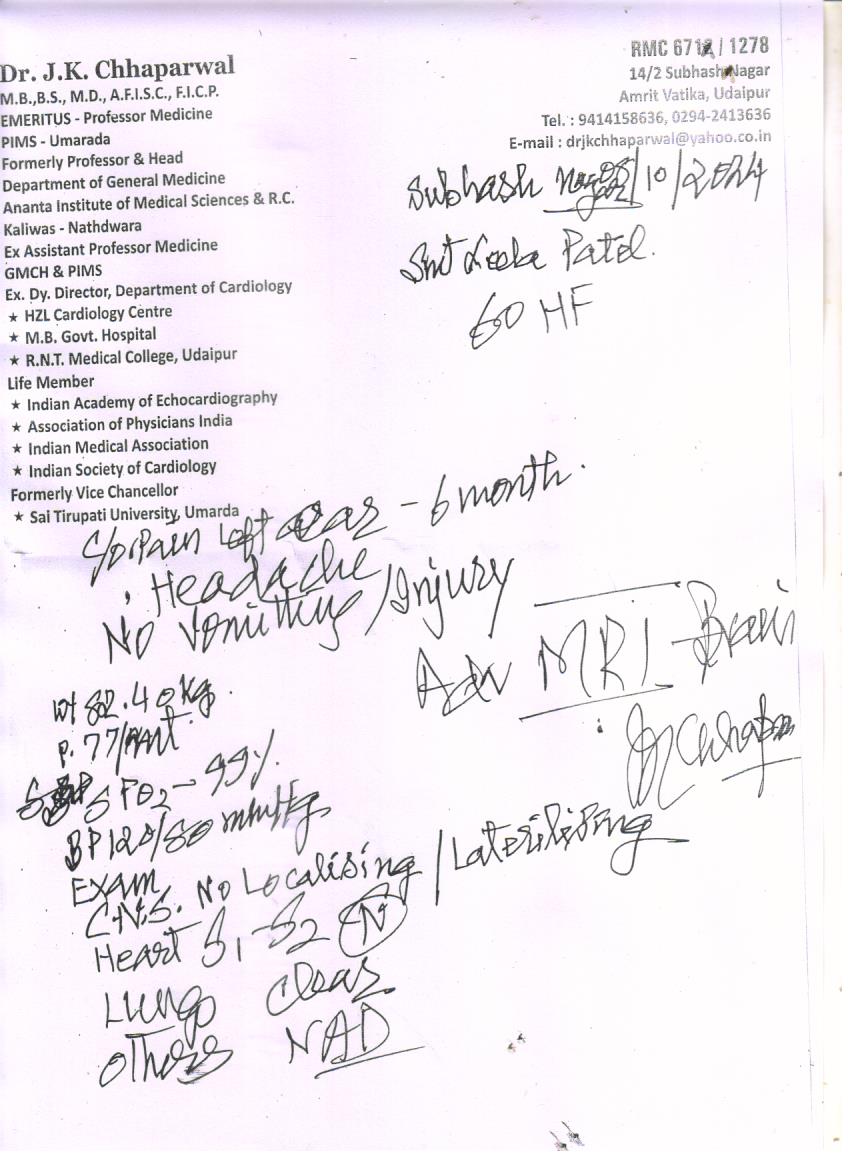 Dr. J.K. Chhaparwal
M.B.,B.S., M.D., A.F.I.S.C., F.I.C.P.
EMERITUS - Professor Medicine
PIMS - Umarada
Formerly Professor & Head
Department of General Medicine
Ananta Institute of Medical Sciences & R.C.
Kaliwas - Nathdwara
Ex Assistant Professor Medicine
GMCH & PIMS
Ex. Dy. Director, Department of Cardiology
★ HZL Cardiology Centre
★ M.B. Govt. Hospital
★ R.N.T. Medical College, Udaipur
Life Member
★ Indian Academy of Echocardiography
★ Association of Physicians India
★ Indian Medical Association
★ Indian Society of Cardiology
Formerly Vice Chancellor
★ Sai Tirupati University, Umarda
RMC 671 / 1278
14/2 Subhash Nagar
Amrit Vatika, Udaipur
Tel. : 9414158636, 0294-2413636
E-mail : drjkchhaparwal@yahoo.co.in
Subhash /10/2024
Smt Patel.
60 HF
C/o Pain Left ear - 6 month.
Headache
No Vomitting / Injury
Adv MRI - Brain
Wt 82.40 kg.
P. 77/mnt
SPO2 - 99%
BP 120/80 mmHg
Exam
C.N.S. No Localising / Laterilising
Heart S1 - S2 N
Lungs Clear
Others NAD